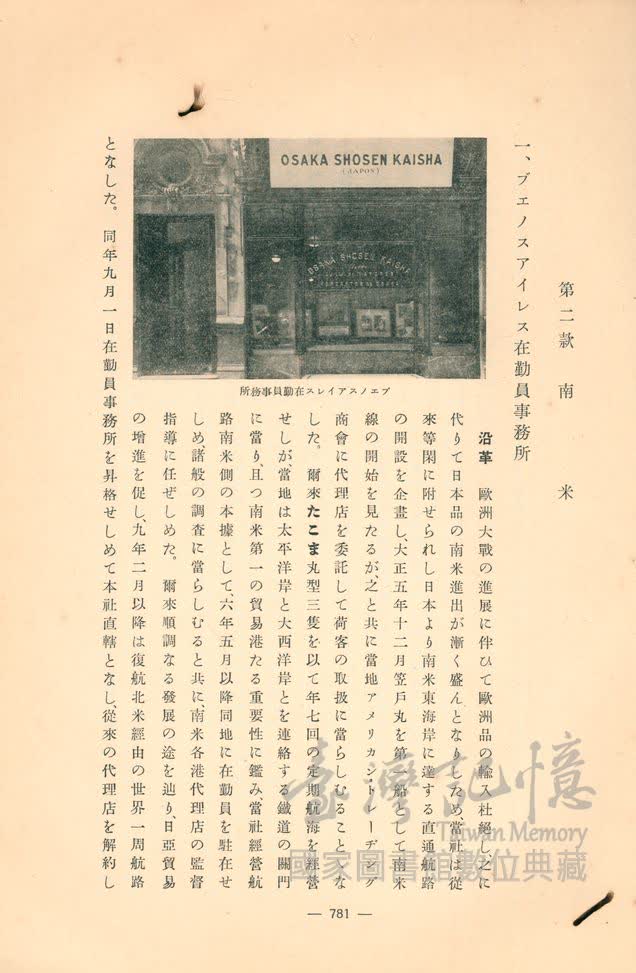 第二款　南　米
一、ブエノスアイレス在勤員事務所
OSAKA SHOSEN KAISHA
(JAPON)
OSAKA SHOSEN KAISHA
ブエノスアイレス在勤員事務所
沿革　歐洲大戰の進展に伴ひて歐洲品の輸入杜絕し、之に
代りて日本品の南米進出が漸く盛んとなりしため、當社は從
來等閑に附せられし日本より南米東海岸に達する直通航路
の開設を企畫し、大正五年十二月笠戶丸を第一船として南米
線の開始を見たるが、之と共に當地アメリカン・トレーヂング
商會に代理店を委託して荷客の取扱に當らしむることゝな
した。　爾來たこま丸型三隻を以て年七回の定期航海を經營
せしが、當地は太平洋岸と大西洋岸とを連絡する鐵道の關門
に當り、且つ南米第一の貿易港たる重要性に鑑み當社經營航
路南米側の本據として、六年五月以降同地に在勤員を駐在せ
しめ、諸般の調査に當らしむると共に、南米各港代理店の監督
指導に任ぜしめた。　爾來順調なる發展の途を辿り、日亞貿易
の增進を促し、九年二月以降は復航北米經由の世界一周航路
となした。　同年九月一日在勤員事務所を昇格せしめて本社直轄となし、從來の代理店を解約し
— 781 —
臺灣記憶
Taiwan Memory
國家圖書館數位典藏